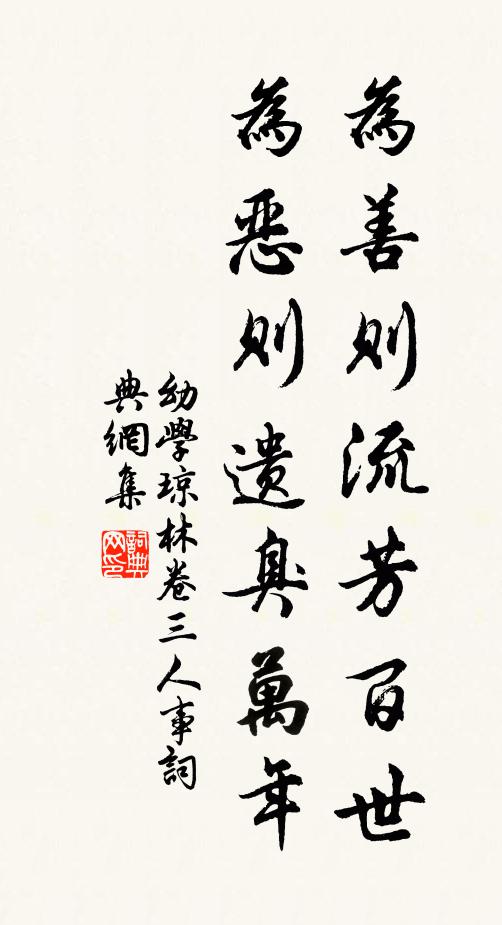 為善則流芳百世
為惡則遺臭萬年
幼學琼林卷三人事詞
典網集
詞典网印